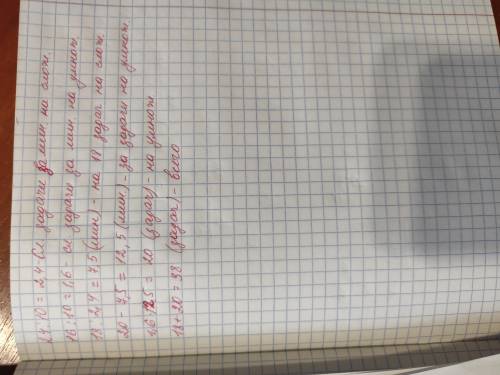 24:10 = 2,4 - сл. задачи за мин. на слож.
16:10 = 1,6 - сл. задачи за мин. на умнож.
18:2,4 = 7,5 (мин) - на 18 задач на слож.
20 - 7,5 = 12,5 (мин) - за задачи на умнож.
1,6·12,5 = 20 (задач) - на умнож
18+20 = 38 (задач) - всего